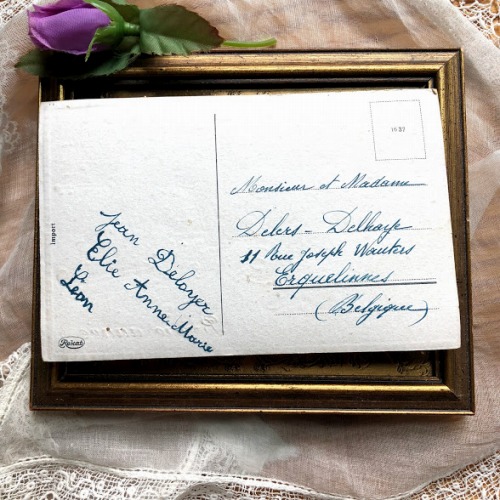 Import
Jean Deloyer
Elie Anne-Marie
Léon
1037
Monsieur et Madame
Delers - Delhaye
11 Rue Joseph Wauters
Erquelinnes
(Belgique)